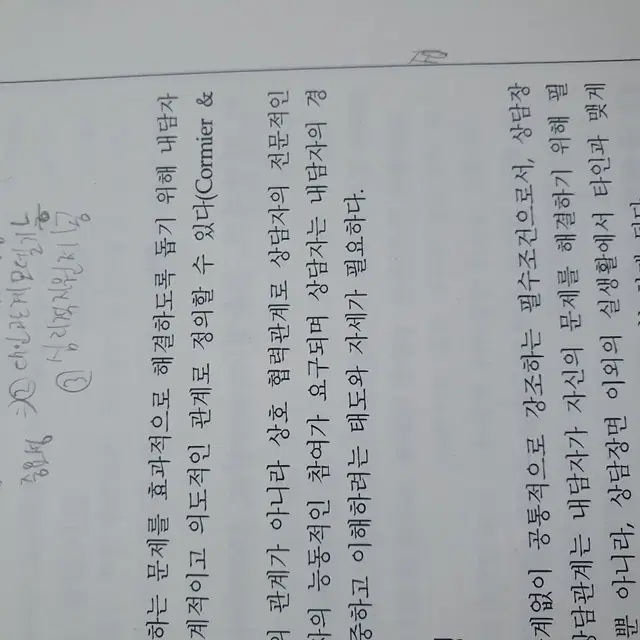 중요성 ② 대인관계모델기능
③ 심리적지원제공
하는 문제를 효과적으로 해결하도록 돕기 위해 내담자
계적이고 의도적인 관계로 정의할 수 있다(Cormier &
의 관계가 아니라 상호 협력관계로 상담자의 전문적인
자의 능동적인 참여가 요구되며 상담자는 내담자의 경
중하고 이해하려는 태도와 자세가 필요하다.
계없이 공통적으로 강조하는 필수조건으로서, 상담장
상담관계는 내담자가 자신의 문제를 해결하기 위해 필
뿐 아니라, 상담장면 이외의 실생활에서 타인과 맺게